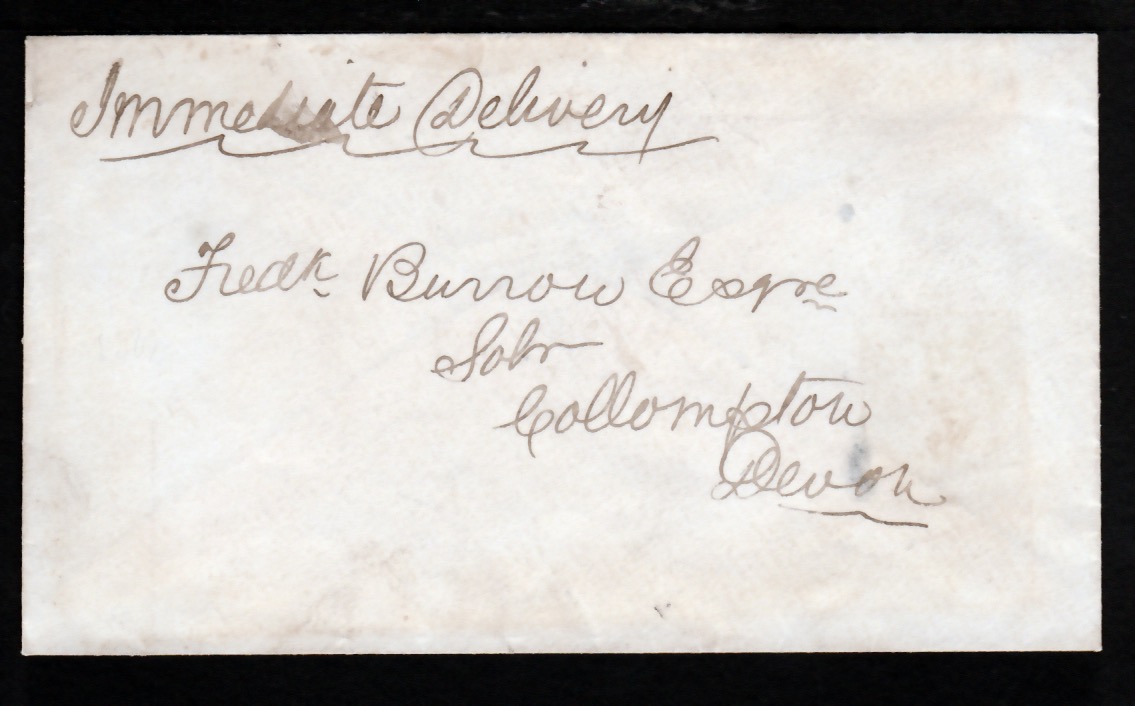 Immediate Delivery
Fredk. Burrow Esqre
Solr
Collompton
Devon